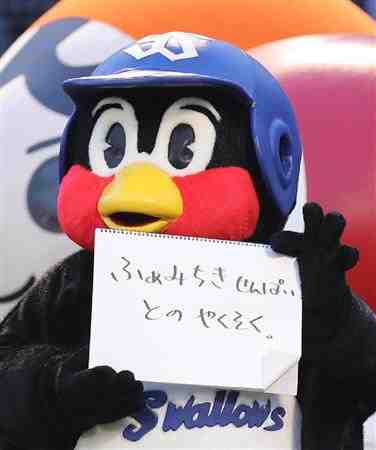 ふぁみちきせんぱい
との やくそく。
Swallows